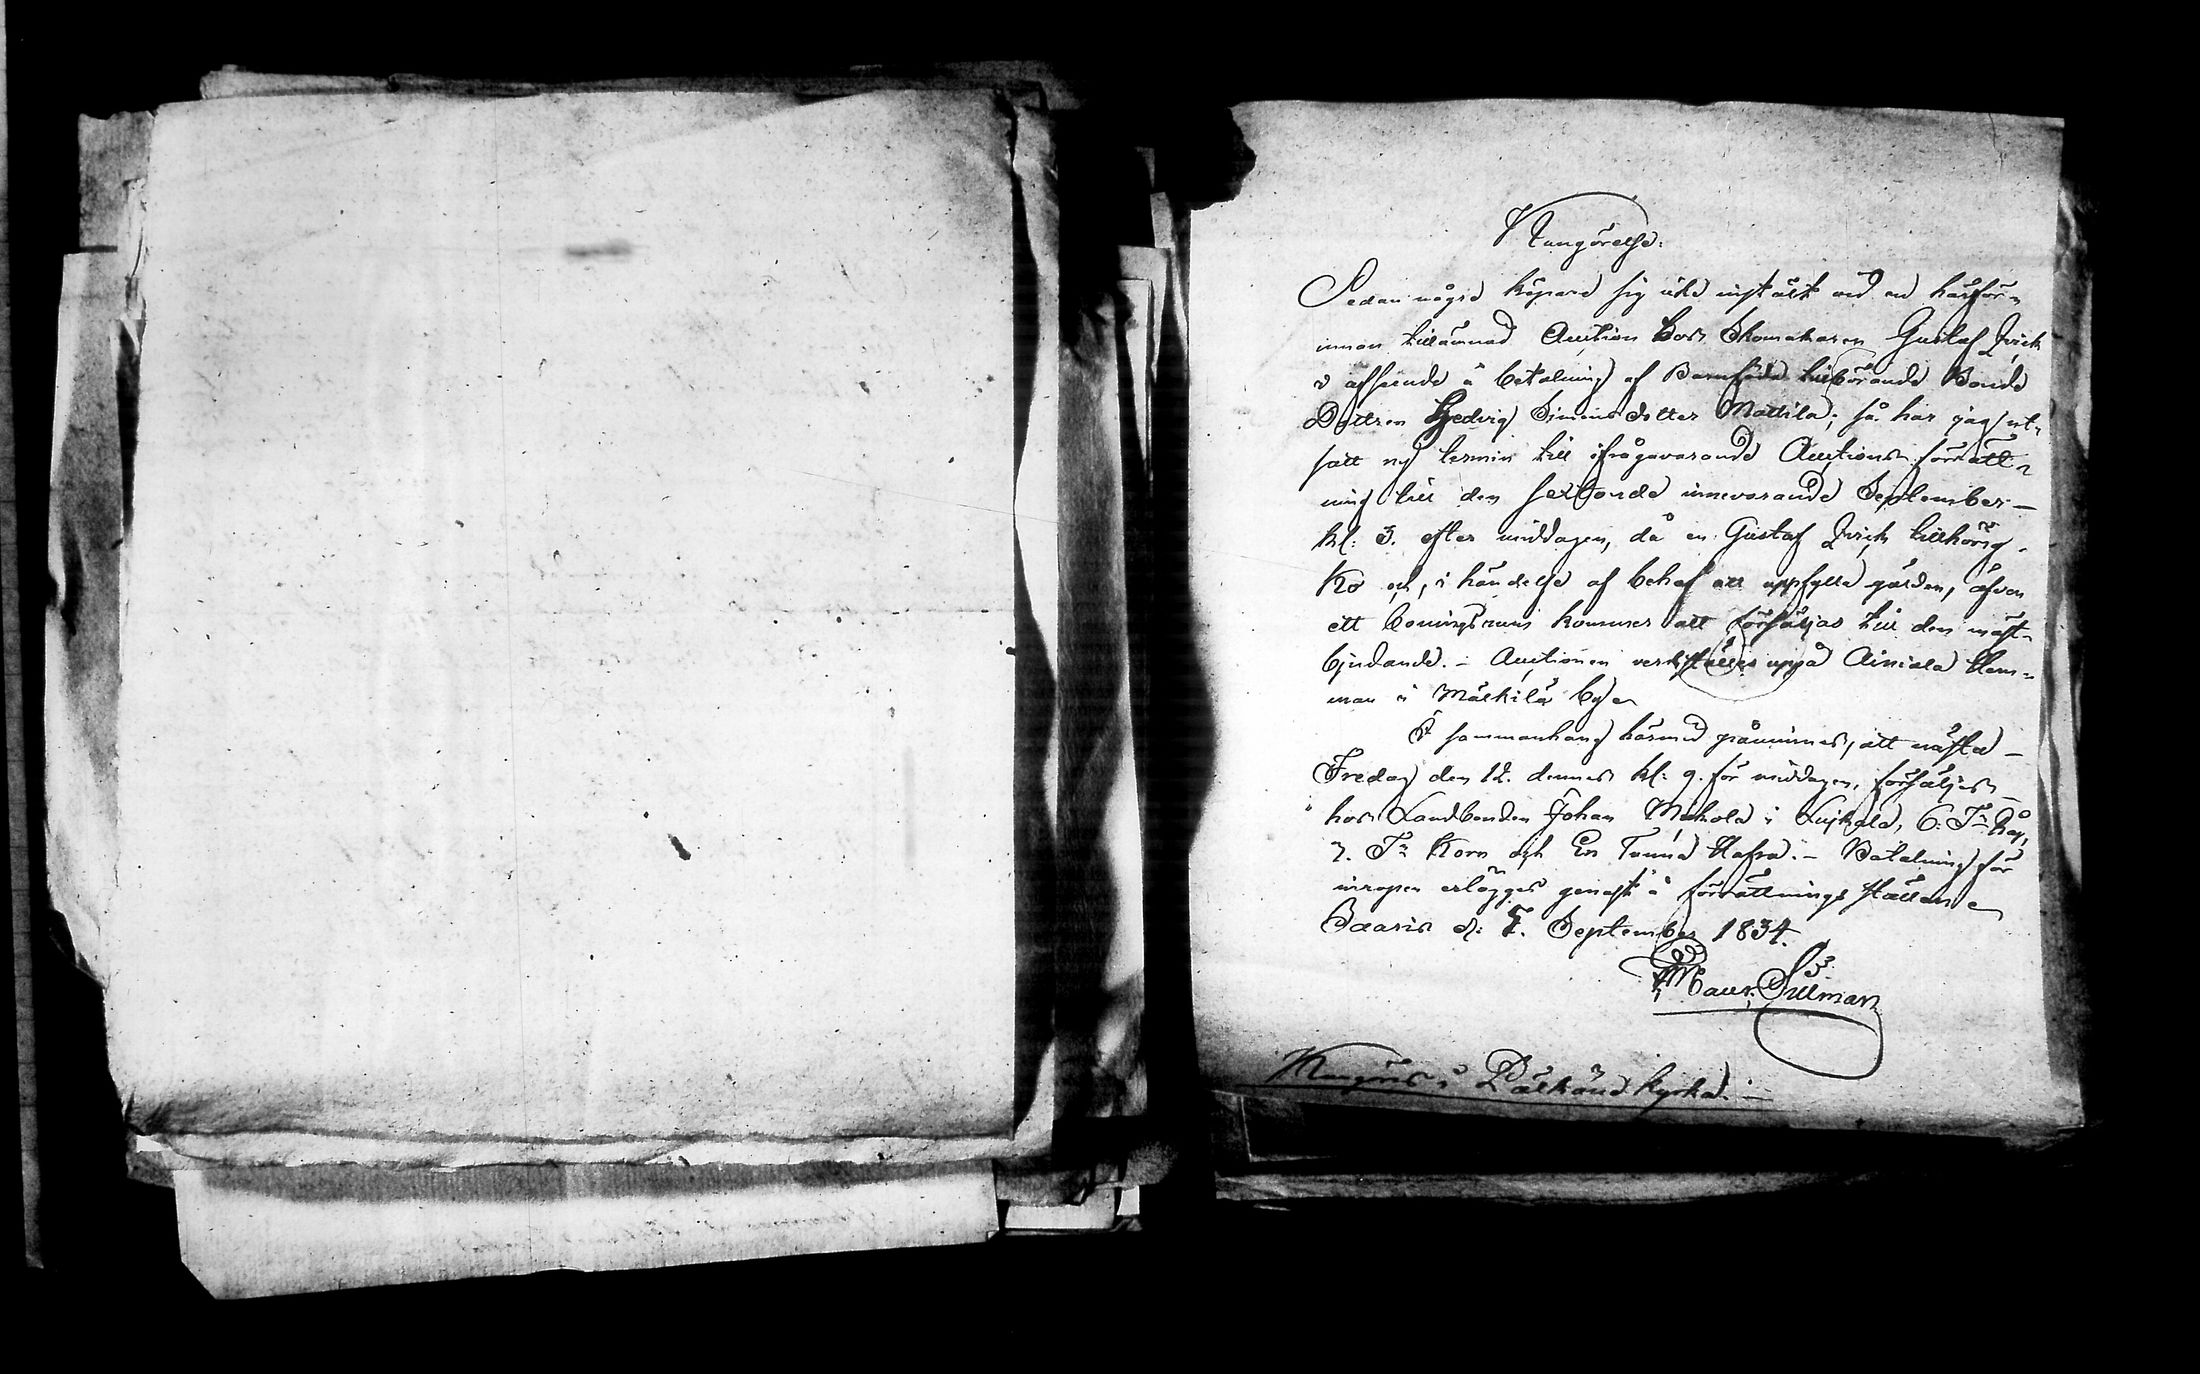 Kungörelse.
Sedan någre köpare sig icke instält vid en härför-
innan tillämnad Auction hos Skomakaren Gustaf Qvick
i afseende å betalning af Barnföda tillhörande Bonde
Dottren Hedvig Simons dotter Mattila; så har jag ut-
satt ny termin till ifrågavarande Auctions förrätt-
ning till den sextonde innevarande September
kl: 3. efter middagen, då en Gustaf Qvick tillhörig
Ko och, i händelse af behof att uppfylla gälden, äfven
ett boningsrum kommer att försäljas till den mäst-
bjudande. - Auctionen verkställes uppå Ainiala Hem-
man i Mälkilä by
I sammanhang härmed påminnes, att nästa
Fredag den 12. dennes kl: 9. för middagen, försäljes
hos Landbonden Johan in Luikala, 6. Tr Råg,
7. Tr Korn och En Tunna Hafra. - Betalning för
inropen erlägges genast å förrättnings ställen
Saaris d: 7. September 1834.
Maur. Sillman
Kungöres i Pälkäne kyrka. -